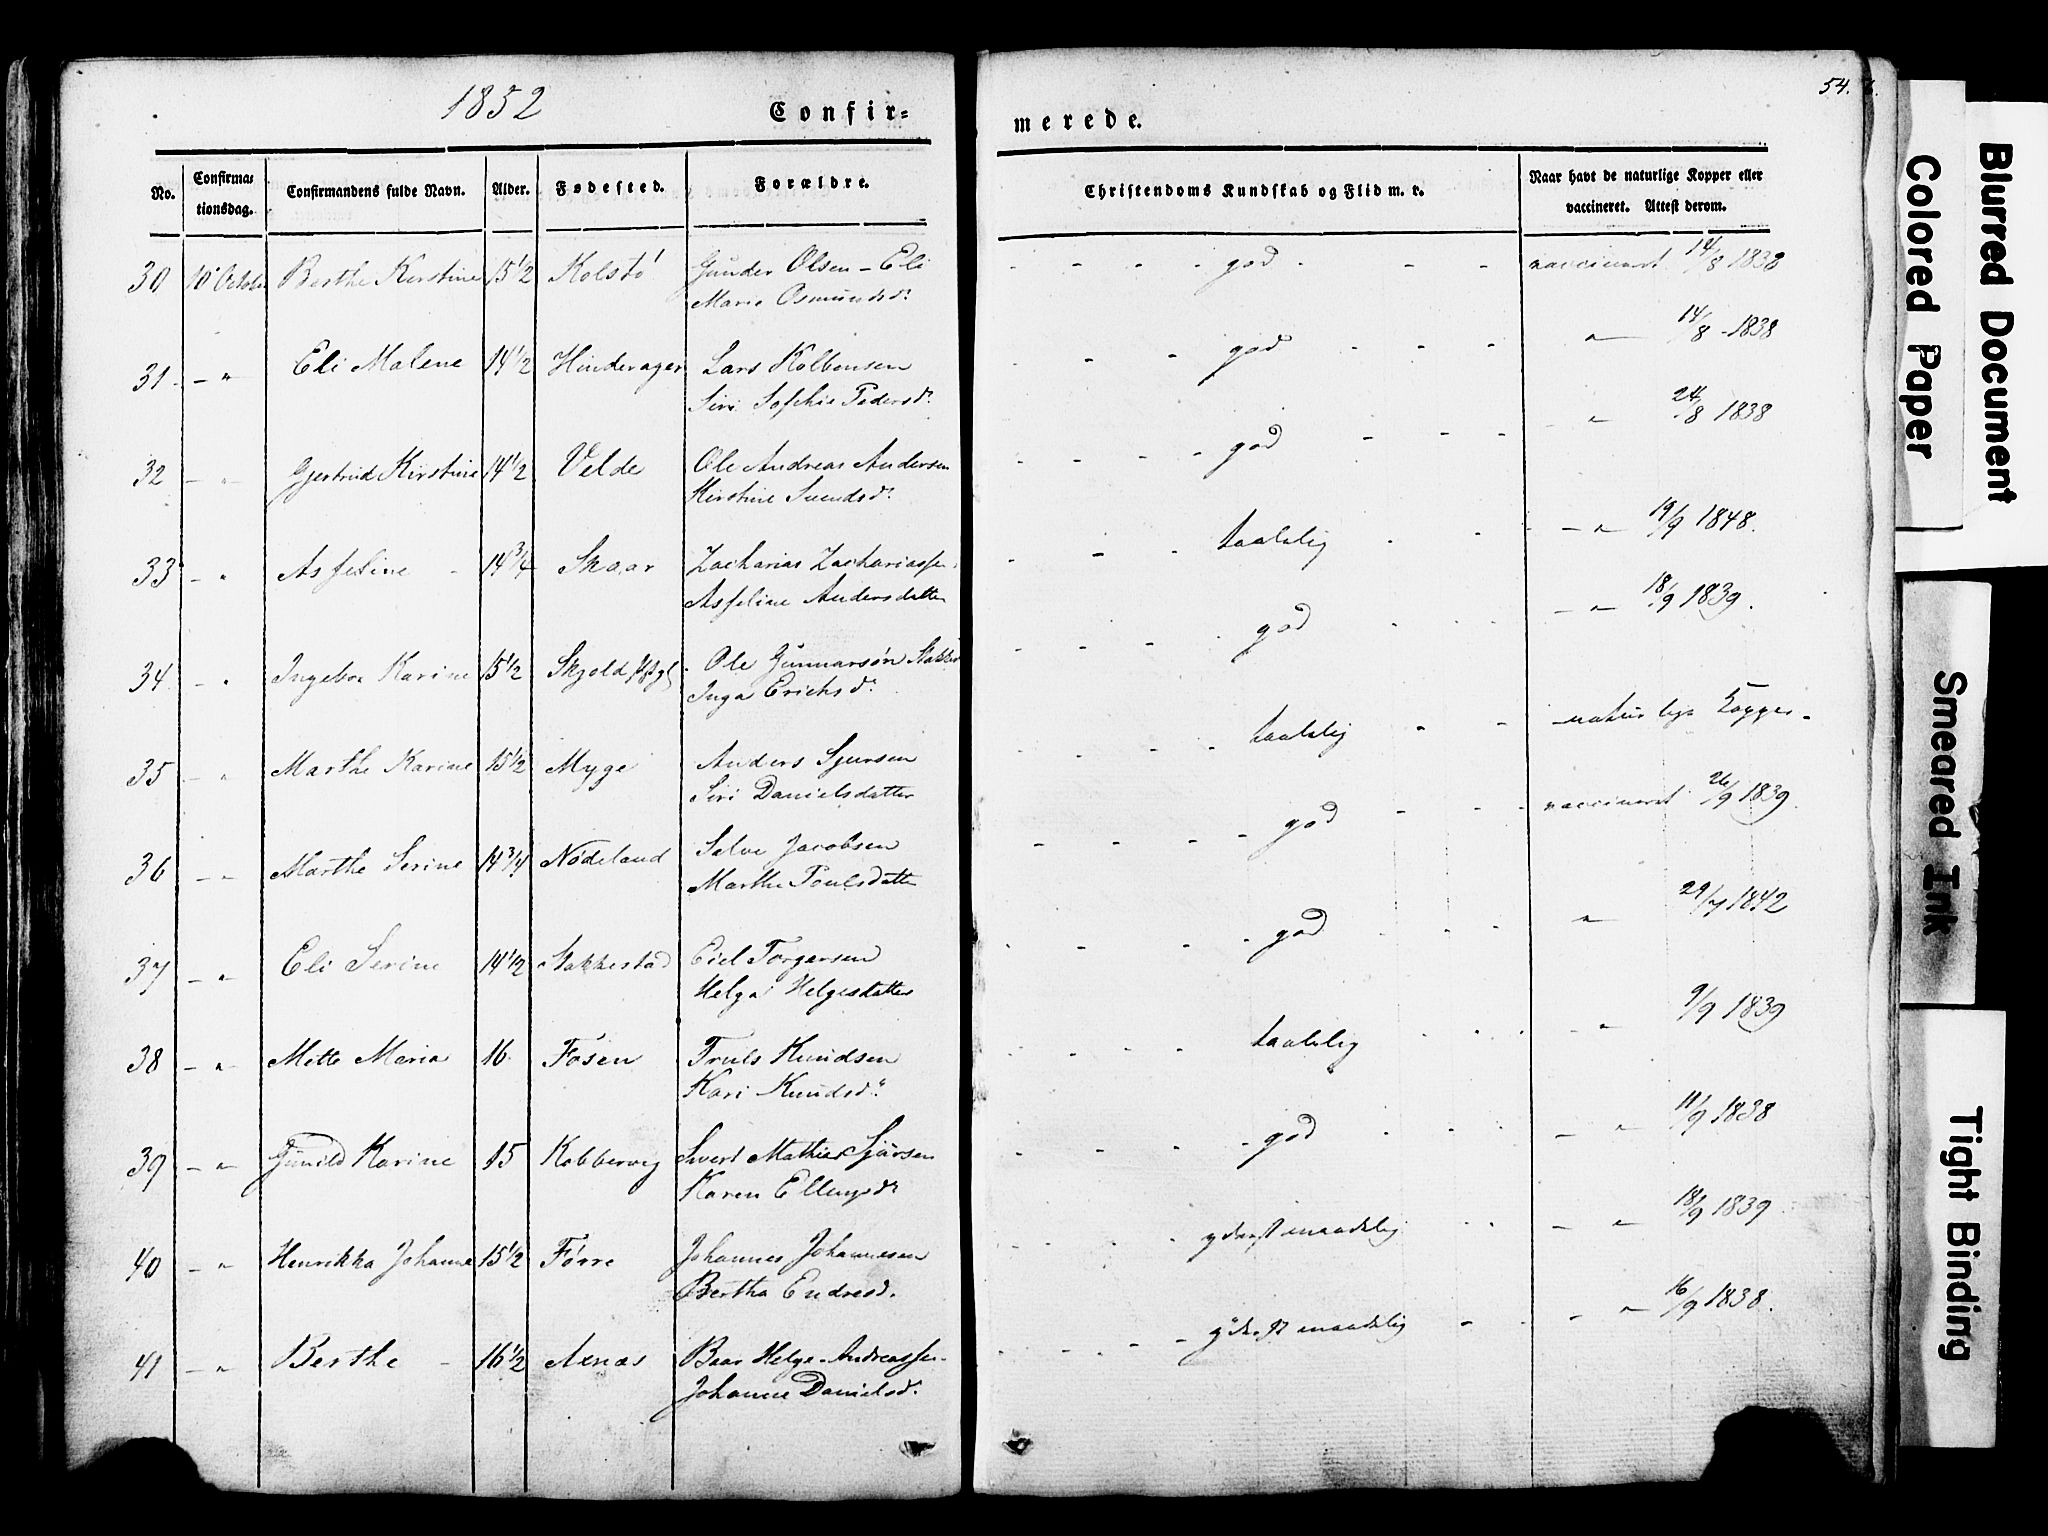 1852
Confir=
merede.
54.
No.
Confirma=
tionsdag.
Confirmandens fulde Navn.
Alder.
Fødested.
Forældre.
Christendoms Kundskab og Flid m. v.
Naar havt de naturlige Kopper eller
vaccineret. Attest derom.
30 10 October Berthe Kirstine 15 1/2 Kolstø Gunder Olsen - Eli - - - god - - - vaccineret 14/8 1838
Marie Osmundsd.
31 - " Eli Malene 14 1/2 Hinderager Lars Kolbensen - - - god - - - " 14/8 - 1838
Siri Sophie Pedersd.
32 - " Gjertrud Kirstine 14 1/2 Velde Ole Andreas Andersen - - - god - - - " 24/8 1838
Kirstine Svendsd.
33 - " Asseline 14 3/4 Skaar Zacharias Zachariassen - - - taalelig - - - " 19/9 1848.
Asseline Andersdatter
34 - " Ingebor Karine 15 1/2 Skjold Ole Gunnarsøn - - - god - - - " 18/9 1839.
Inga Erichsd.
35 - " Marthe Karine 15 1/2 Myge Anders Sjursen - - - taalelig - - naturlige Kopper.
Siri Danielsdatter
36 - " Marthe Serine 14 3/4 Nødeland Salve Jacobsen - - - god - - - vaccineret 26/9 1839.
Marthe Poulsdatter
37 - " Eli Serine 14 1/2 Stakkestad Eiel Torgersen - - - god - - - " 29/7 1842
Helga Helgesdatter
38 - " Mette Maria 16 Fosen Truls Knudsen - - - taalelig - - - " 9/9 1839
Kari Knudsd.
39 - " Gunild Karine 15 Kobbervig Sivert Mathias Sjursen - - - god - - - " 11/9 1838
Karen Ellingsd.
40 - " Henrikka Johanne 15 1/2 Førre Johannes Johannesen - - - yderst maadelig - - - " 18/9 1839.
Bertha Endresd.
41 - " Berthe 16 1/2 Axnæs Baar Helge Andreassen - - - yderst maadelig - - - " 16/9 1838.
Johanne Danielsd.
Blurred Document
Colored Paper
Smeared Ink
Tight Binding